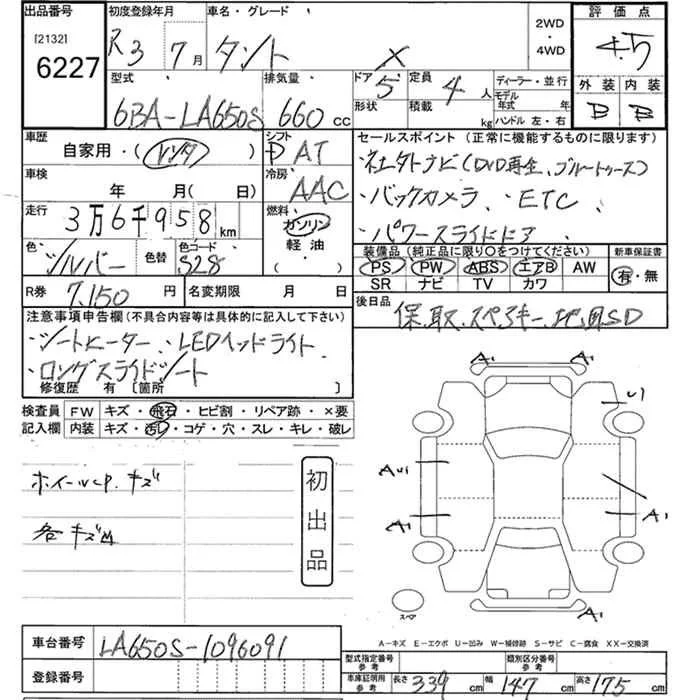 出品番号 初度登録年月 車名・グレード 2WD・4WD 評価点
[2132] 6227 R3 7月 タント X 4.5
型式 排気量 ドア 形状 定員 積載 ディーラー・並行 モデル年式 年 外装 内装
6BA-LA650S 660cc 5 4人 kg ハンドル 左・右 B B
車歴 自家用・(レンタ) シフト P AT セールスポイント(正常に機能するものに限ります)
車検 年 月(日) 冷房 AAC ・ナビ(DVD再生、ブルートゥース)
走行 3万6千958km 燃料 ガソリン 軽油・( ) ・バックカメラ、・ETC、
色 シルバー 色替 色コード S28 ・パワースライドドア
装備品(純正品に限り○をつけてください) 新車保証書
PS PW ABS エアB AW 有・無
SR ナビ TV カワ
R券 7,150円 名変期限 月 日 後日品 保、取、スペアキー、地図SD
注意事項申告欄(不具合内容等は具体的に記入して下さい)
・シートヒーター、・LEDヘッドライト
・ロングスライドシート
修復歴 有 [箇所 ]
検査員 FW キズ・飛石・ヒビ割・リペア跡・×要
記入欄 内装 キズ・汚レ・コゲ・穴・スレ・キレ・破レ
ホイールCP.キズ
各キズ
初出品
A1 A1
U1
AU1
A1 A1
A1
スペア
A-キズ E-エクボ U-凹み W-補修跡 S-サビ C-腐食 XX-交換済
車台番号 LA650S-1096091
登録番号
型式指定番号 参考 類別区分番号 参考
車庫証明用 参考 長さ 339cm 幅 147cm 高さ 175cm